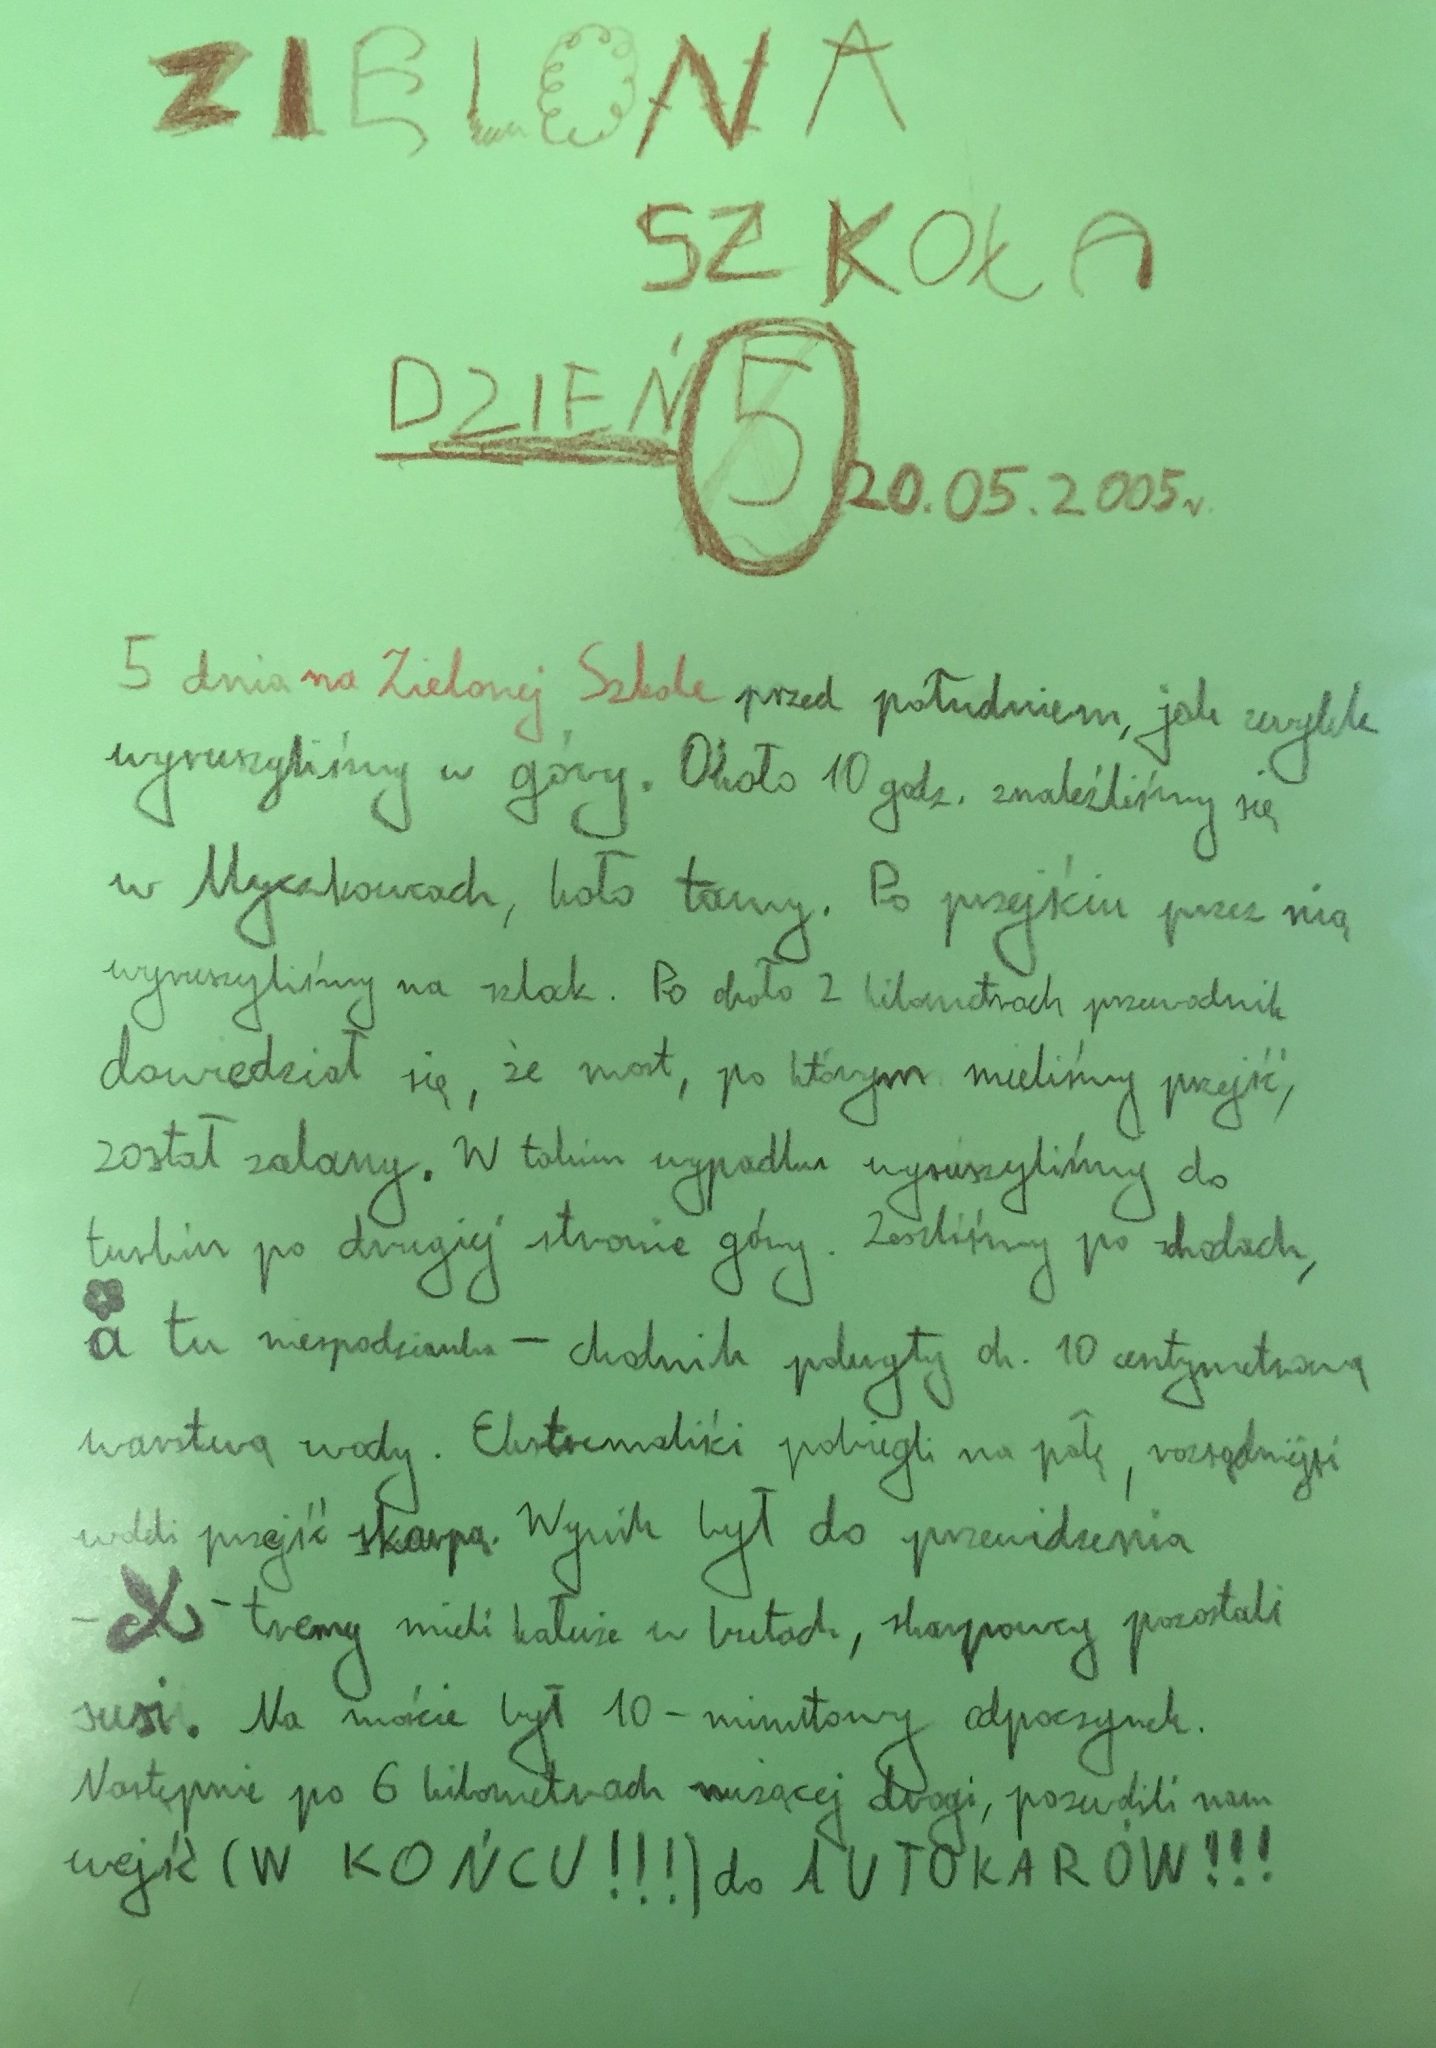 ZIELONA
SZKOŁA
DZIEŃ 5 20.05.2005r.
5 dnia na Zielonej Szkole przed południem, jak zwykle
wyruszyliśmy w góry. Około 10 godz. znaleźliśmy się
w Myczkowcach, koło tamy. Po przejściu przez nią
wyruszyliśmy na szlak. Po około 2 kilometrach przewodnik
dowiedział się, że most, po którym mieliśmy przejść,
został zalany. W takim wypadku wyruszyliśmy do
turbin po drugiej stronie góry. Zeszliśmy po schodach,
a tu niespodzianka - chodnik pokryty ok. 10 centymetrową
warstwą wody. Ekstremaliści pobiegli na pałę, rozsądniejsi
woleli przejść skarpą. Wynik był do przewidzenia
- X-tremy mieli kałuże w butach, skarpowcy pozostali
susi. Na moście był 10-minutowy odpoczynek.
Następnie po 6 kilometrach nużącej drogi, pozwolili nam
wejść (W KOŃCU!!!) do AUTOKARÓW!!!